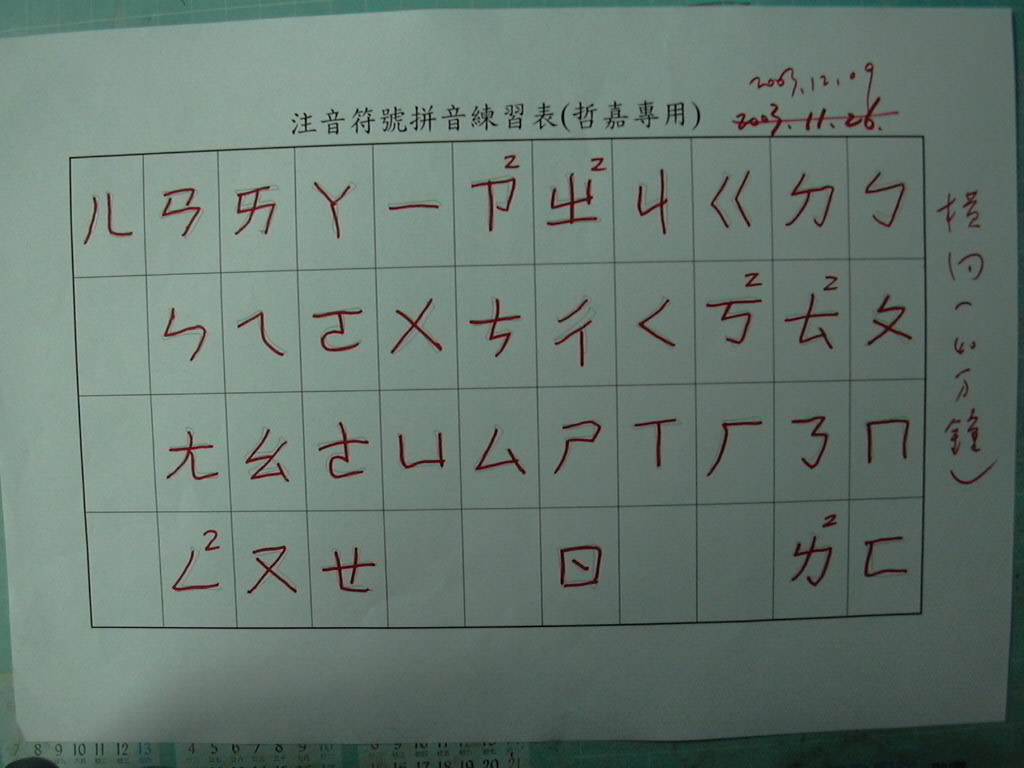 2003.12.09
注音符號拼音練習表(哲嘉專用)
2003.11.26.
ㄦ ㄢ ㄞ ㄚ ㄧ ㄗ2 ㄓ2 ㄐ ㄍ ㄉ ㄅ
ㄣ ㄟ ㄛ ㄨ ㄘ ㄔ ㄑ ㄎ2 ㄊ2 ㄆ
ㄤ ㄠ ㄜ ㄩ ㄙ ㄕ ㄒ ㄏ ㄋ ㄇ
ㄥ2 ㄡ ㄝ ㄖ ㄌ2 ㄈ
橫向(40分鐘)
7 8 9 10 11 12 13
4 5 6 7 8 9 10